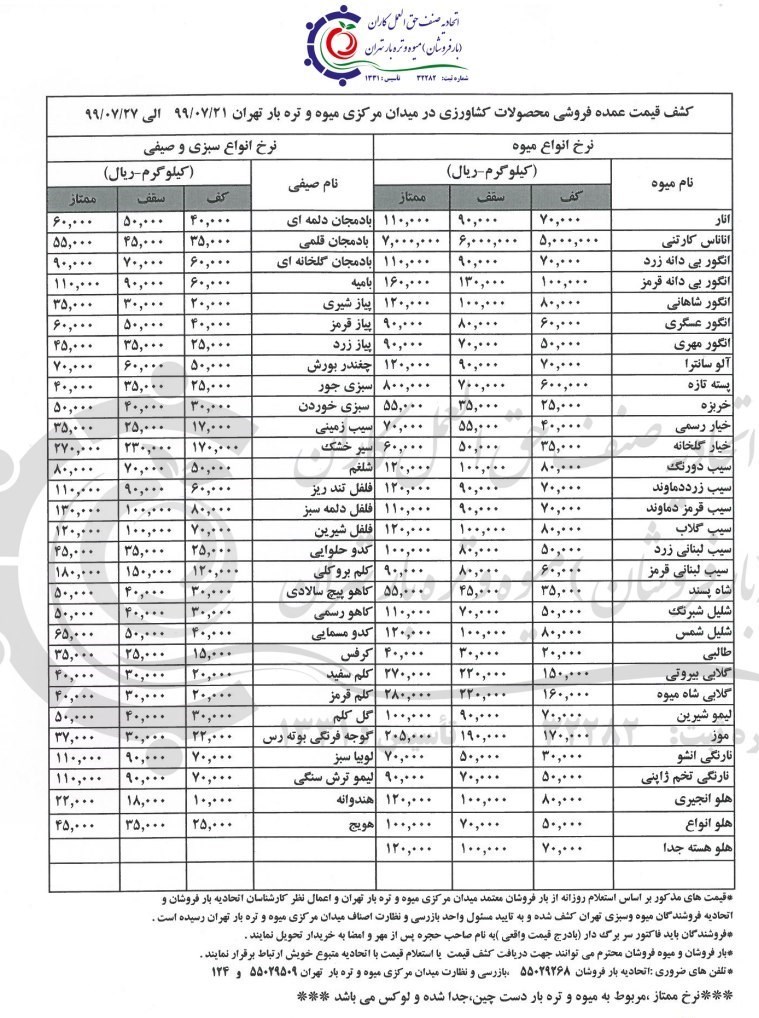 اتحادیه صنف حق العمل کاران
(بارفروشان) میوه و تره بار تهران
شماره ثبت: ۳۲۲۸۲ تاسیس: ۱۳۳۱
کشف قیمت عمده فروشی محصولات کشاورزی در میدان مرکزی میوه و تره بار تهران ۹۹/۰۷/۲۱ الی ۹۹/۰۷/۲۷
نرخ انواع میوه نرخ انواع سبزی و صیفی
نام میوه (کیلوگرم-ریال) نام صیفی (کیلوگرم-ریال)
کف سقف ممتاز کف سقف ممتاز
انار ۷۰,۰۰۰ ۹۰,۰۰۰ ۱۱۰,۰۰۰ بادمجان دلمه ای ۴۰,۰۰۰ ۵۰,۰۰۰ ۶۰,۰۰۰
اناناس کارتنی ۵,۰۰۰,۰۰۰ ۶,۰۰۰,۰۰۰ ۷,۰۰۰,۰۰۰ بادمجان قلمی ۳۵,۰۰۰ ۴۵,۰۰۰ ۵۵,۰۰۰
انگور بی دانه زرد ۷۰,۰۰۰ ۹۰,۰۰۰ ۱۱۰,۰۰۰ بادمجان گلخانه ای ۶۰,۰۰۰ ۷۰,۰۰۰ ۹۰,۰۰۰
انگور بی دانه قرمز ۱۰۰,۰۰۰ ۱۳۰,۰۰۰ ۱۶۰,۰۰۰ بامیه ۶۰,۰۰۰ ۹۰,۰۰۰ ۱۱۰,۰۰۰
انگور شاهانی ۸۰,۰۰۰ ۱۰۰,۰۰۰ ۱۲۰,۰۰۰ پیاز شیری ۲۰,۰۰۰ ۳۰,۰۰۰ ۳۵,۰۰۰
انگور عسگری ۶۰,۰۰۰ ۸۰,۰۰۰ ۹۰,۰۰۰ پیاز قرمز ۴۰,۰۰۰ ۵۰,۰۰۰ ۶۰,۰۰۰
انگور مهری ۵۰,۰۰۰ ۷۰,۰۰۰ ۹۰,۰۰۰ پیاز زرد ۲۵,۰۰۰ ۳۵,۰۰۰ ۴۵,۰۰۰
آلو سانترا ۷۰,۰۰۰ ۹۰,۰۰۰ ۱۲۰,۰۰۰ چغندر بورش ۵۰,۰۰۰ ۶۰,۰۰۰ ۷۰,۰۰۰
پسته تازه ۶۰۰,۰۰۰ ۷۰۰,۰۰۰ ۸۰۰,۰۰۰ سبزی جور ۲۵,۰۰۰ ۳۵,۰۰۰ ۴۰,۰۰۰
خربزه ۲۵,۰۰۰ ۳۵,۰۰۰ ۵۵,۰۰۰ سبزی خوردن ۳۰,۰۰۰ ۴۰,۰۰۰ ۵۰,۰۰۰
خیار رسمی ۴۰,۰۰۰ ۵۵,۰۰۰ ۷۰,۰۰۰ سیب زمینی ۱۷,۰۰۰ ۲۵,۰۰۰ ۳۵,۰۰۰
خیار گلخانه ۳۵,۰۰۰ ۵۰,۰۰۰ ۶۰,۰۰۰ سیر خشک ۱۷۰,۰۰۰ ۲۳۰,۰۰۰ ۲۷۰,۰۰۰
سیب دورنگ ۸۰,۰۰۰ ۱۰۰,۰۰۰ ۱۲۰,۰۰۰ شلغم ۵۰,۰۰۰ ۷۰,۰۰۰ ۸۰,۰۰۰
سیب زرددماوند ۷۰,۰۰۰ ۹۰,۰۰۰ ۱۲۰,۰۰۰ فلفل تند ریز ۶۰,۰۰۰ ۹۰,۰۰۰ ۱۱۰,۰۰۰
سیب قرمز دماوند ۷۰,۰۰۰ ۹۰,۰۰۰ ۱۱۰,۰۰۰ فلفل دلمه سبز ۸۰,۰۰۰ ۱۰۰,۰۰۰ ۱۳۰,۰۰۰
سیب گلاب ۸۰,۰۰۰ ۱۰۰,۰۰۰ ۱۲۰,۰۰۰ فلفل شیرین ۷۰,۰۰۰ ۱۰۰,۰۰۰ ۱۲۰,۰۰۰
سیب لبنانی زرد ۵۰,۰۰۰ ۸۰,۰۰۰ ۱۰۰,۰۰۰ کدو حلوایی ۲۵,۰۰۰ ۳۵,۰۰۰ ۴۵,۰۰۰
سیب لبنانی قرمز ۶۰,۰۰۰ ۸۰,۰۰۰ ۹۰,۰۰۰ کلم بروکلی ۱۲۰,۰۰۰ ۱۵۰,۰۰۰ ۱۸۰,۰۰۰
شاه پسند ۳۵,۰۰۰ ۴۵,۰۰۰ ۵۵,۰۰۰ کاهو پیچ سالادی ۳۰,۰۰۰ ۴۰,۰۰۰ ۵۰,۰۰۰
شلیل شبرنگ ۵۰,۰۰۰ ۷۰,۰۰۰ ۱۱۰,۰۰۰ کاهو رسمی ۳۰,۰۰۰ ۴۰,۰۰۰ ۵۰,۰۰۰
شلیل شمس ۸۰,۰۰۰ ۱۰۰,۰۰۰ ۱۲۰,۰۰۰ کدو مسمایی ۴۰,۰۰۰ ۵۰,۰۰۰ ۶۵,۰۰۰
طالبی ۲۰,۰۰۰ ۳۰,۰۰۰ ۴۰,۰۰۰ کرفس ۱۵,۰۰۰ ۲۵,۰۰۰ ۳۵,۰۰۰
گلابی بیروتی ۱۵۰,۰۰۰ ۲۲۰,۰۰۰ ۲۷۰,۰۰۰ کلم سفید ۲۰,۰۰۰ ۳۰,۰۰۰ ۴۰,۰۰۰
گلابی شاه میوه ۱۶۰,۰۰۰ ۲۲۰,۰۰۰ ۲۸۰,۰۰۰ کلم قرمز ۲۰,۰۰۰ ۳۰,۰۰۰ ۴۰,۰۰۰
لیمو شیرین ۷۰,۰۰۰ ۹۰,۰۰۰ ۱۰۰,۰۰۰ گل کلم ۳۰,۰۰۰ ۴۰,۰۰۰ ۵۰,۰۰۰
موز ۱۷۰,۰۰۰ ۱۹۰,۰۰۰ ۲۰۵,۰۰۰ گوجه فرنگی بوته رس ۲۲,۰۰۰ ۳۰,۰۰۰ ۳۷,۰۰۰
نارنگی انشو ۳۰,۰۰۰ ۵۰,۰۰۰ ۷۰,۰۰۰ لوبیا سبز ۷۰,۰۰۰ ۹۰,۰۰۰ ۱۱۰,۰۰۰
نارنگی تخم ژاپنی ۵۰,۰۰۰ ۷۰,۰۰۰ ۹۰,۰۰۰ لیمو ترش سنگی ۷۰,۰۰۰ ۹۰,۰۰۰ ۱۱۰,۰۰۰
هلو انجیری ۸۰,۰۰۰ ۱۰۰,۰۰۰ ۱۲۰,۰۰۰ هندوانه ۱۰,۰۰۰ ۱۸,۰۰۰ ۲۲,۰۰۰
هلو انواع ۵۰,۰۰۰ ۷۰,۰۰۰ ۱۰۰,۰۰۰ هویج ۲۵,۰۰۰ ۳۵,۰۰۰ ۴۵,۰۰۰
هلو هسته جدا ۷۰,۰۰۰ ۱۰۰,۰۰۰ ۱۲۰,۰۰۰
*قیمت های مذکور بر اساس استعلام روزانه از بار فروشان معتمد میدان مرکزی میوه و تره بار تهران و اعمال نظر کارشناسان اتحادیه بار فروشان و
اتحادیه فروشندگان میوه وسبزی تهران کشف شده و به تایید مسئول واحد بازرسی و نظارت اصناف میدان مرکزی میوه و تره بار تهران رسیده است .
*فروشندگان باید فاکتور سر برگ دار (بادرج قیمت واقعی )به نام صاحب حجره پس از مهر و امضا به خریدار تحویل نمایند .
*بار فروشان و میوه فروشان محترم می توانند جهت دریافت کشف قیمت یا استعلام قیمت با اتحادیه متبوع خویش ارتباط برقرار نمایند .
*تلفن های ضروری :اتحادیه بار فروشان ۵۵۰۲۹۲۶۸ ،بازرسی و نظارت میدان مرکزی میوه و تره بار تهران ۵۵۰۲۹۵۰۹ و ۱۲۴
***نرخ ممتاز ،مربوط به میوه و تره بار دست چین،جدا شده و لوکس می باشد ***